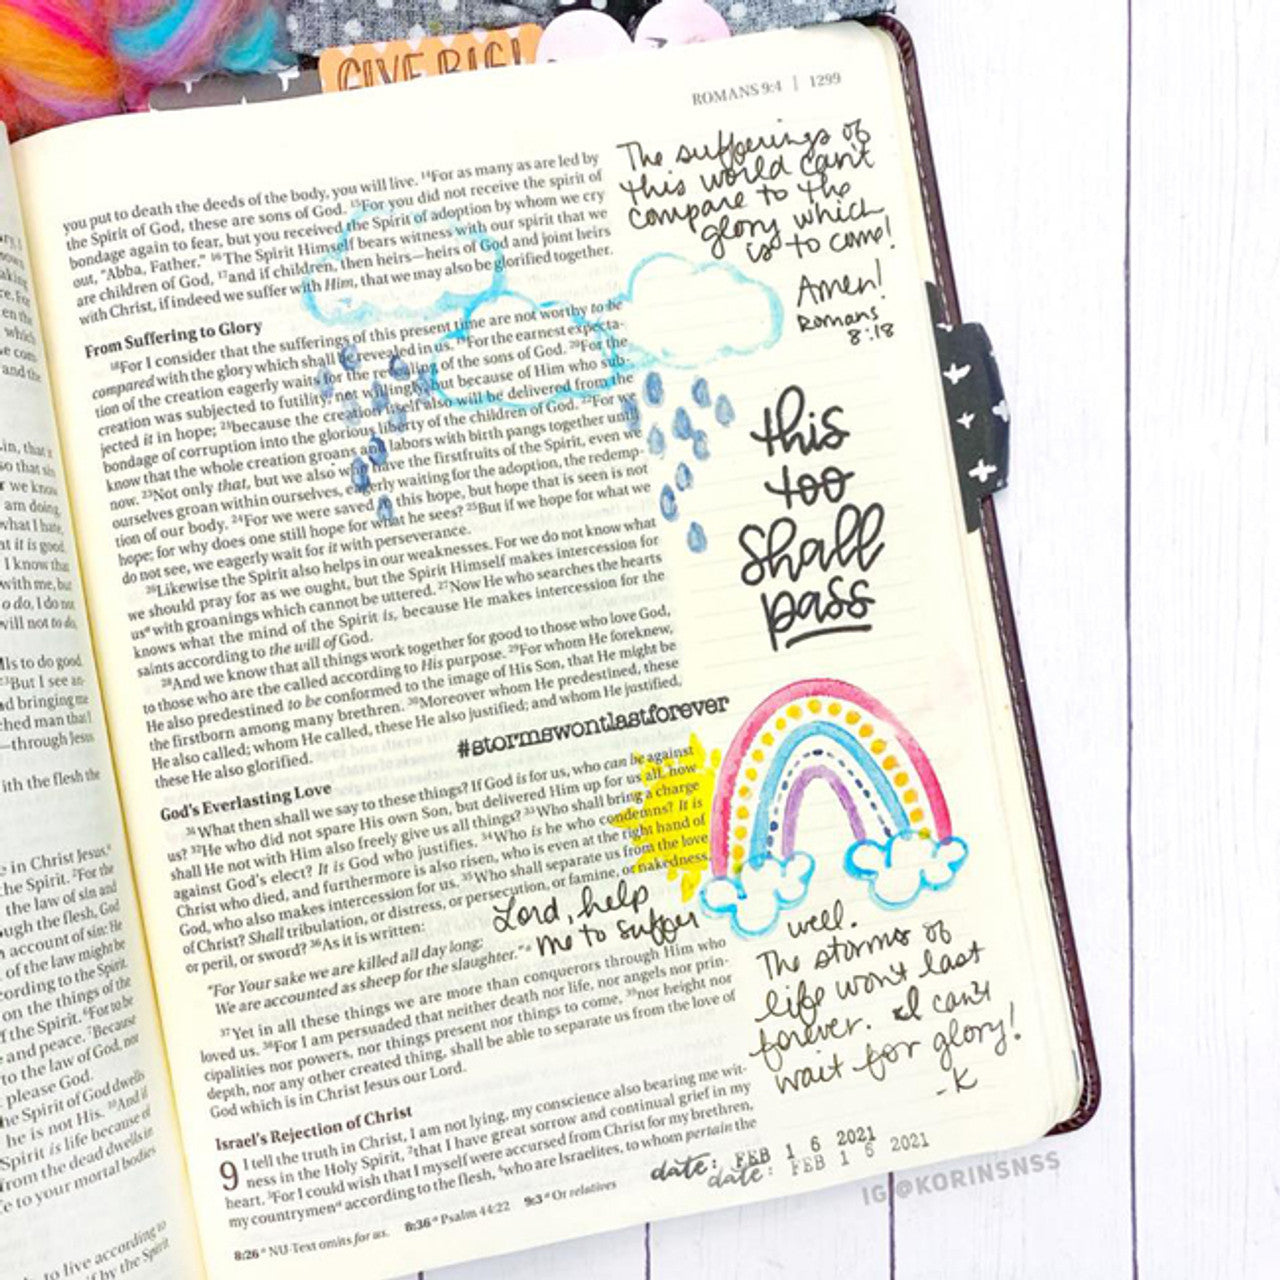 GIVE BIG!
ROMANS 9:4 | 1299
The sufferings of
this world can't
compare to the
glory which
is to come!
Amen!
Romans
8:18
you put to death the deeds of the body, you will live. 14For as many as are led by
the Spirit of God, these are sons of God. 15For you did not receive the spirit of
bondage again to fear, but you received the Spirit of adoption by whom we cry
out, "Abba, Father." 16The Spirit Himself bears witness with our spirit that we
are children of God, 17and if children, then heirs—heirs of God and joint heirs
with Christ, if indeed we suffer with Him, that we may also be glorified together.
From Suffering to Glory
18For I consider that the sufferings of this present time are not worthy to be
compared with the glory which shall be revealed in us. 19For the earnest expecta-
tion of the creation eagerly waits for the revealing of the sons of God. 20For the
creation was subjected to futility, not willingly, but because of Him who sub-
jected it in hope; 21because the creation itself also will be delivered from the
bondage of corruption into the glorious liberty of the children of God. 22For we
know that the whole creation groans and labors with birth pangs together until
now. 23Not only that, but we also who have the firstfruits of the Spirit, even we
ourselves groan within ourselves, eagerly waiting for the adoption, the redemp-
tion of our body. 24For we were saved in this hope, but hope that is seen is not
hope; for why does one still hope for what he sees? 25But if we hope for what we
do not see, we eagerly wait for it with perseverance.
26Likewise the Spirit also helps in our weaknesses. For we do not know what
we should pray for as we ought, but the Spirit Himself makes intercession for
usa with groanings which cannot be uttered. 27Now He who searches the hearts
knows what the mind of the Spirit is, because He makes intercession for the
saints according to the will of God.
28And we know that all things work together for good to those who love God,
to those who are the called according to His purpose. 29For whom He foreknew,
He also predestined to be conformed to the image of His Son, that He might be
the firstborn among many brethren. 30Moreover whom He predestined, these
He also called; whom He called, these He also justified; and whom He justified,
these He also glorified.
this
too
shall
pass
#stormswontlastforever
God's Everlasting Love
31What then shall we say to these things? If God is for us, who can be against
us? 32He who did not spare His own Son, but delivered Him up for us all, how
shall He not with Him also freely give us all things? 33Who shall bring a charge
against God's elect? It is God who justifies. 34Who is he who condemns? It is
Christ who died, and furthermore is also risen, who is even at the right hand of
God, who also makes intercession for us. 35Who shall separate us from the love
of Christ? Shall tribulation, or distress, or persecution, or famine, or nakedness,
or peril, or sword? 36As it is written:
"For Your sake we are killed all day long;
We are accounted as sheep for the slaughter."a
Lord, help
me to suffer
well.
The storms of
life won't last
forever. I can't
wait for glory!
-K
37Yet in all these things we are more than conquerors through Him who
loved us. 38For I am persuaded that neither death nor life, nor angels nor prin-
cipalities nor powers, nor things present nor things to come, 39nor height nor
depth, nor any other created thing, shall be able to separate us from the love of
God which is in Christ Jesus our Lord.
Israel's Rejection of Christ
9 I tell the truth in Christ, I am not lying, my conscience also bearing me wit-
ness in the Holy Spirit, 2that I have great sorrow and continual grief in my
heart. 3For I could wish that I myself were accursed from Christ for my brethren,
my countrymena according to the flesh, 4who are Israelites, to whom pertain the
8:26 a NU-Text omits for us. 8:36 a Psalm 44:22 9:3 a Or relatives
date: FEB 1 6 2021
date: FEB 1 6 2021
IG @KORINSNSS